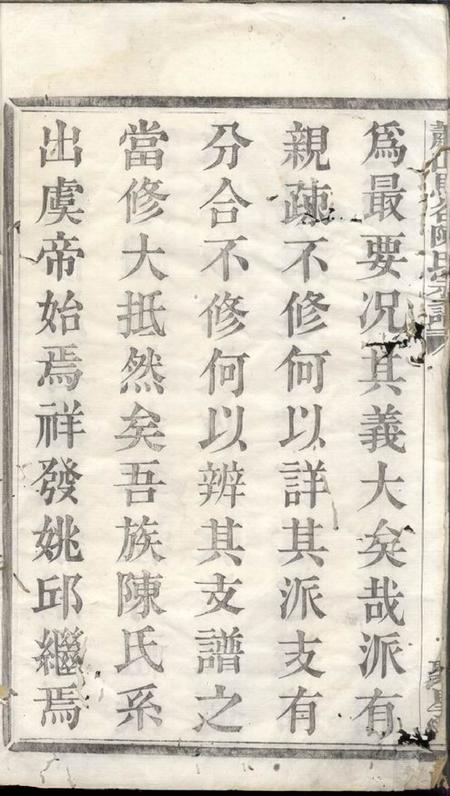 為最要况其義大矣哉派有
親疎不修何以詳其派支有
分合不修何以辨其支譜之
當修大抵然矣吾族陳氏系
出虞帝始焉祥發姚邱繼焉